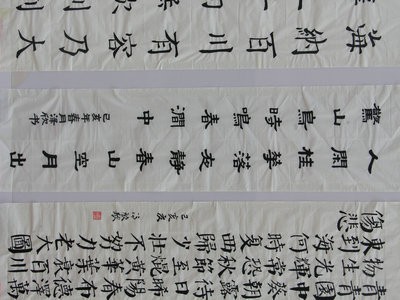 海納百川
有容乃大
人閑桂華落夜靜春山空月出
驚山鳥時鳴春澗中
己亥年春月
青青園中葵朝露待日晞陽春布德澤萬
物生光輝常恐秋節至焜黃華葉衰百川
東到海何時復西歸少壯不努力老大徒
傷悲
己亥夏